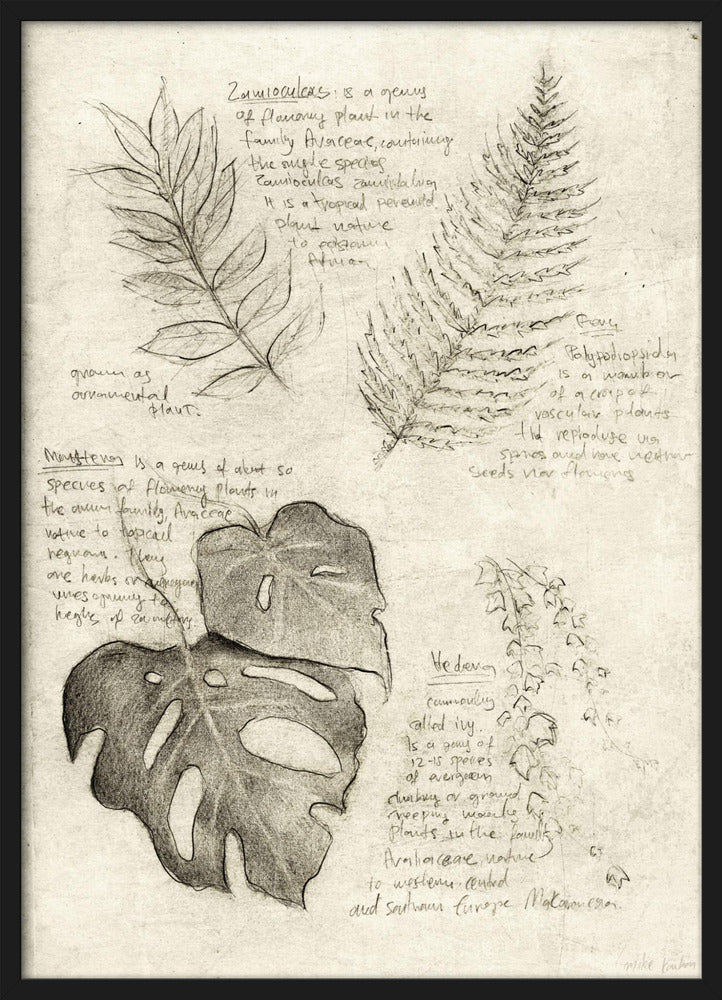 Zamioculcas: is a genus
of flowering plant in the
family Araceae, containing
the single species
Zamioculcas
It is a tropical perennial
plant native
to eastern
African
grown as
ornamental
plant.
Fern
Polypodiopsida
is a member
of a group of
vascular plants
that reproduse via
spores and have neither
seeds nor flowers
Monstera is a genus of about 50
species of flowering plants in
the arum family, Araceae
native to tropical
regions. They
are herbs or
vines growing to
heghs of 20 meters
Hedera
commonly
called ivy.
Is a genus of
12-15 species
of evergreen
climbing or ground
creeping woody
plants in the family
Araliaceae, native
to western, central
and southern Europe Makaronesia.
Mike